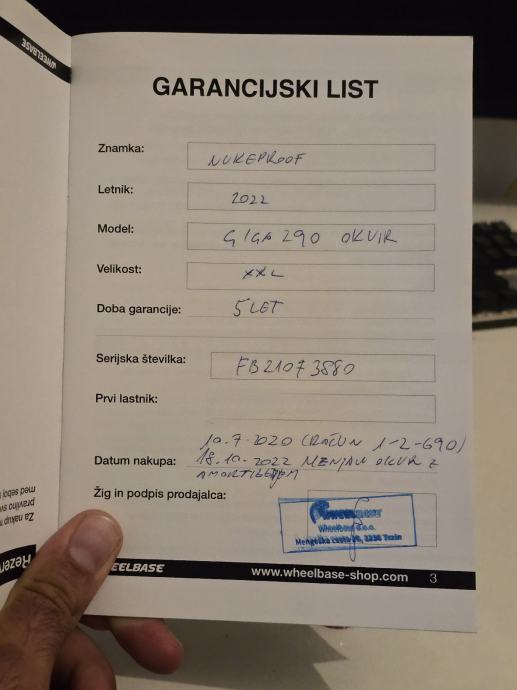 WHEELBASE
GARANCIJSKI LIST
Znamka: NUKEPROOF
Letnik: 2022
Model: GIGA 290 OKVIR
Velikost: XXL
Doba garancije: 5 LET
Serijska številka: FB21073880
Prvi lastnik:
10.7.2020 (RAČUN 1-2-690)
Datum nakupa: 18.10.2022 MENJAVA OKVIR Z
AMORTIZERJEM
Žig in podpis prodajalca:
WHEELBASE
WheelBase d.o.o.
Mengeška cesta 1236 Trzin
Za nakup
pravilno
med seboj
Rezer
EELBASE www.wheelbase-shop.com 3